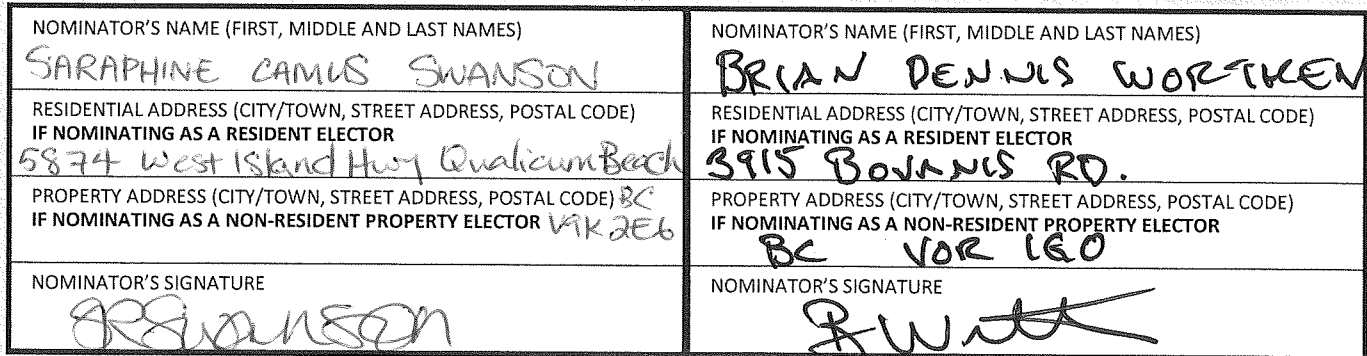 NOMINATOR'S NAME (FIRST, MIDDLE AND LAST NAMES)
SARAPHINE CAMUS SWANSON
RESIDENTIAL ADDRESS (CITY/TOWN, STREET ADDRESS, POSTAL CODE)
IF NOMINATING AS A RESIDENT ELECTOR
5874 West Island Hwy Qualicum Beach
PROPERTY ADDRESS (CITY/TOWN, STREET ADDRESS, POSTAL CODE) BC
IF NOMINATING AS A NON-RESIDENT PROPERTY ELECTOR V9K 2E6
NOMINATOR'S SIGNATURE
SRSwanson
NOMINATOR'S NAME (FIRST, MIDDLE AND LAST NAMES)
BRIAN DENNIS
RESIDENTIAL ADDRESS (CITY/TOWN, STREET ADDRESS, POSTAL CODE)
IF NOMINATING AS A RESIDENT ELECTOR
3915 RD.
PROPERTY ADDRESS (CITY/TOWN, STREET ADDRESS, POSTAL CODE)
IF NOMINATING AS A NON-RESIDENT PROPERTY ELECTOR
BC V0R 1G0
NOMINATOR'S SIGNATURE